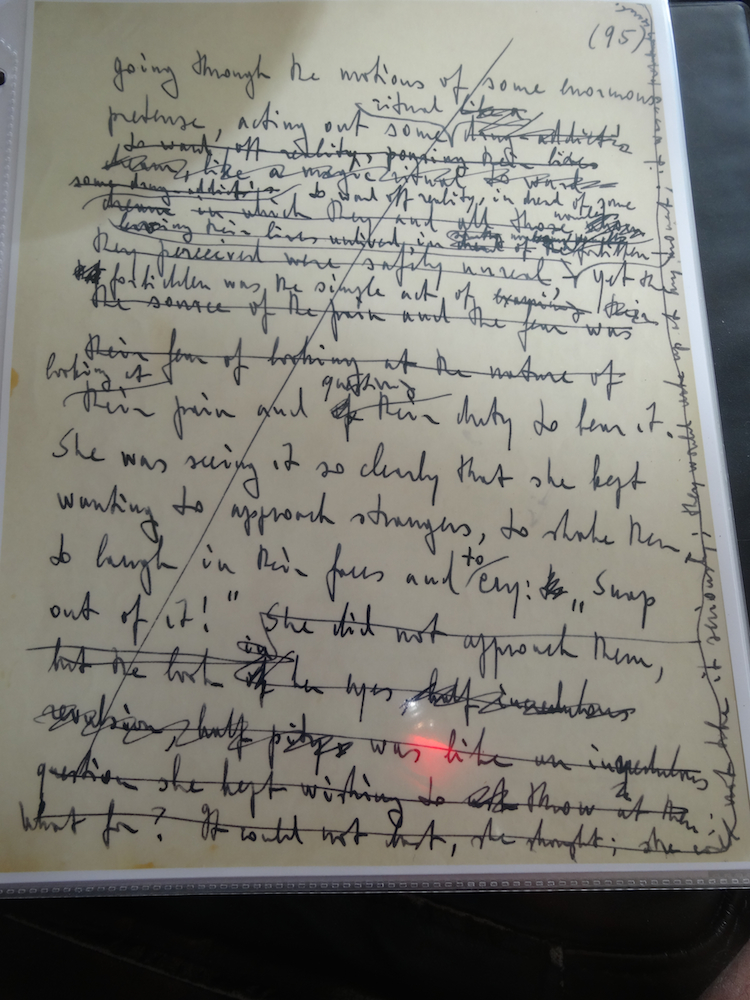 (95)
going through the motions of some enormous
ritual like a
pretense, acting out some drug-addict's
to ward off reality, pouring their lives
like a magic ritual to ward
some drug-addict's to ward off reality, in dread of some
in which they and all those
leaving their lives unlived, in dread of the forbidden
they perceived were safely unreal – yet the
forbidden was the simple act of their
the source of the pain and the fear was
their fear of looking at the nature of
looking at questioning
their pain and their duty to bear it.
She was seeing it so clearly that she kept
wanting to approach strangers, to shake them,
to
to laugh in their faces and cry: „Snap
out of it!" She did not approach them,
in
but the look of her eyes, half incredulous
revulsion, half pity, was like an incredulous
question she kept wishing to throw at them:
What for? It could not last, she thought; she
not take it seriously; they would wake up at any moment,